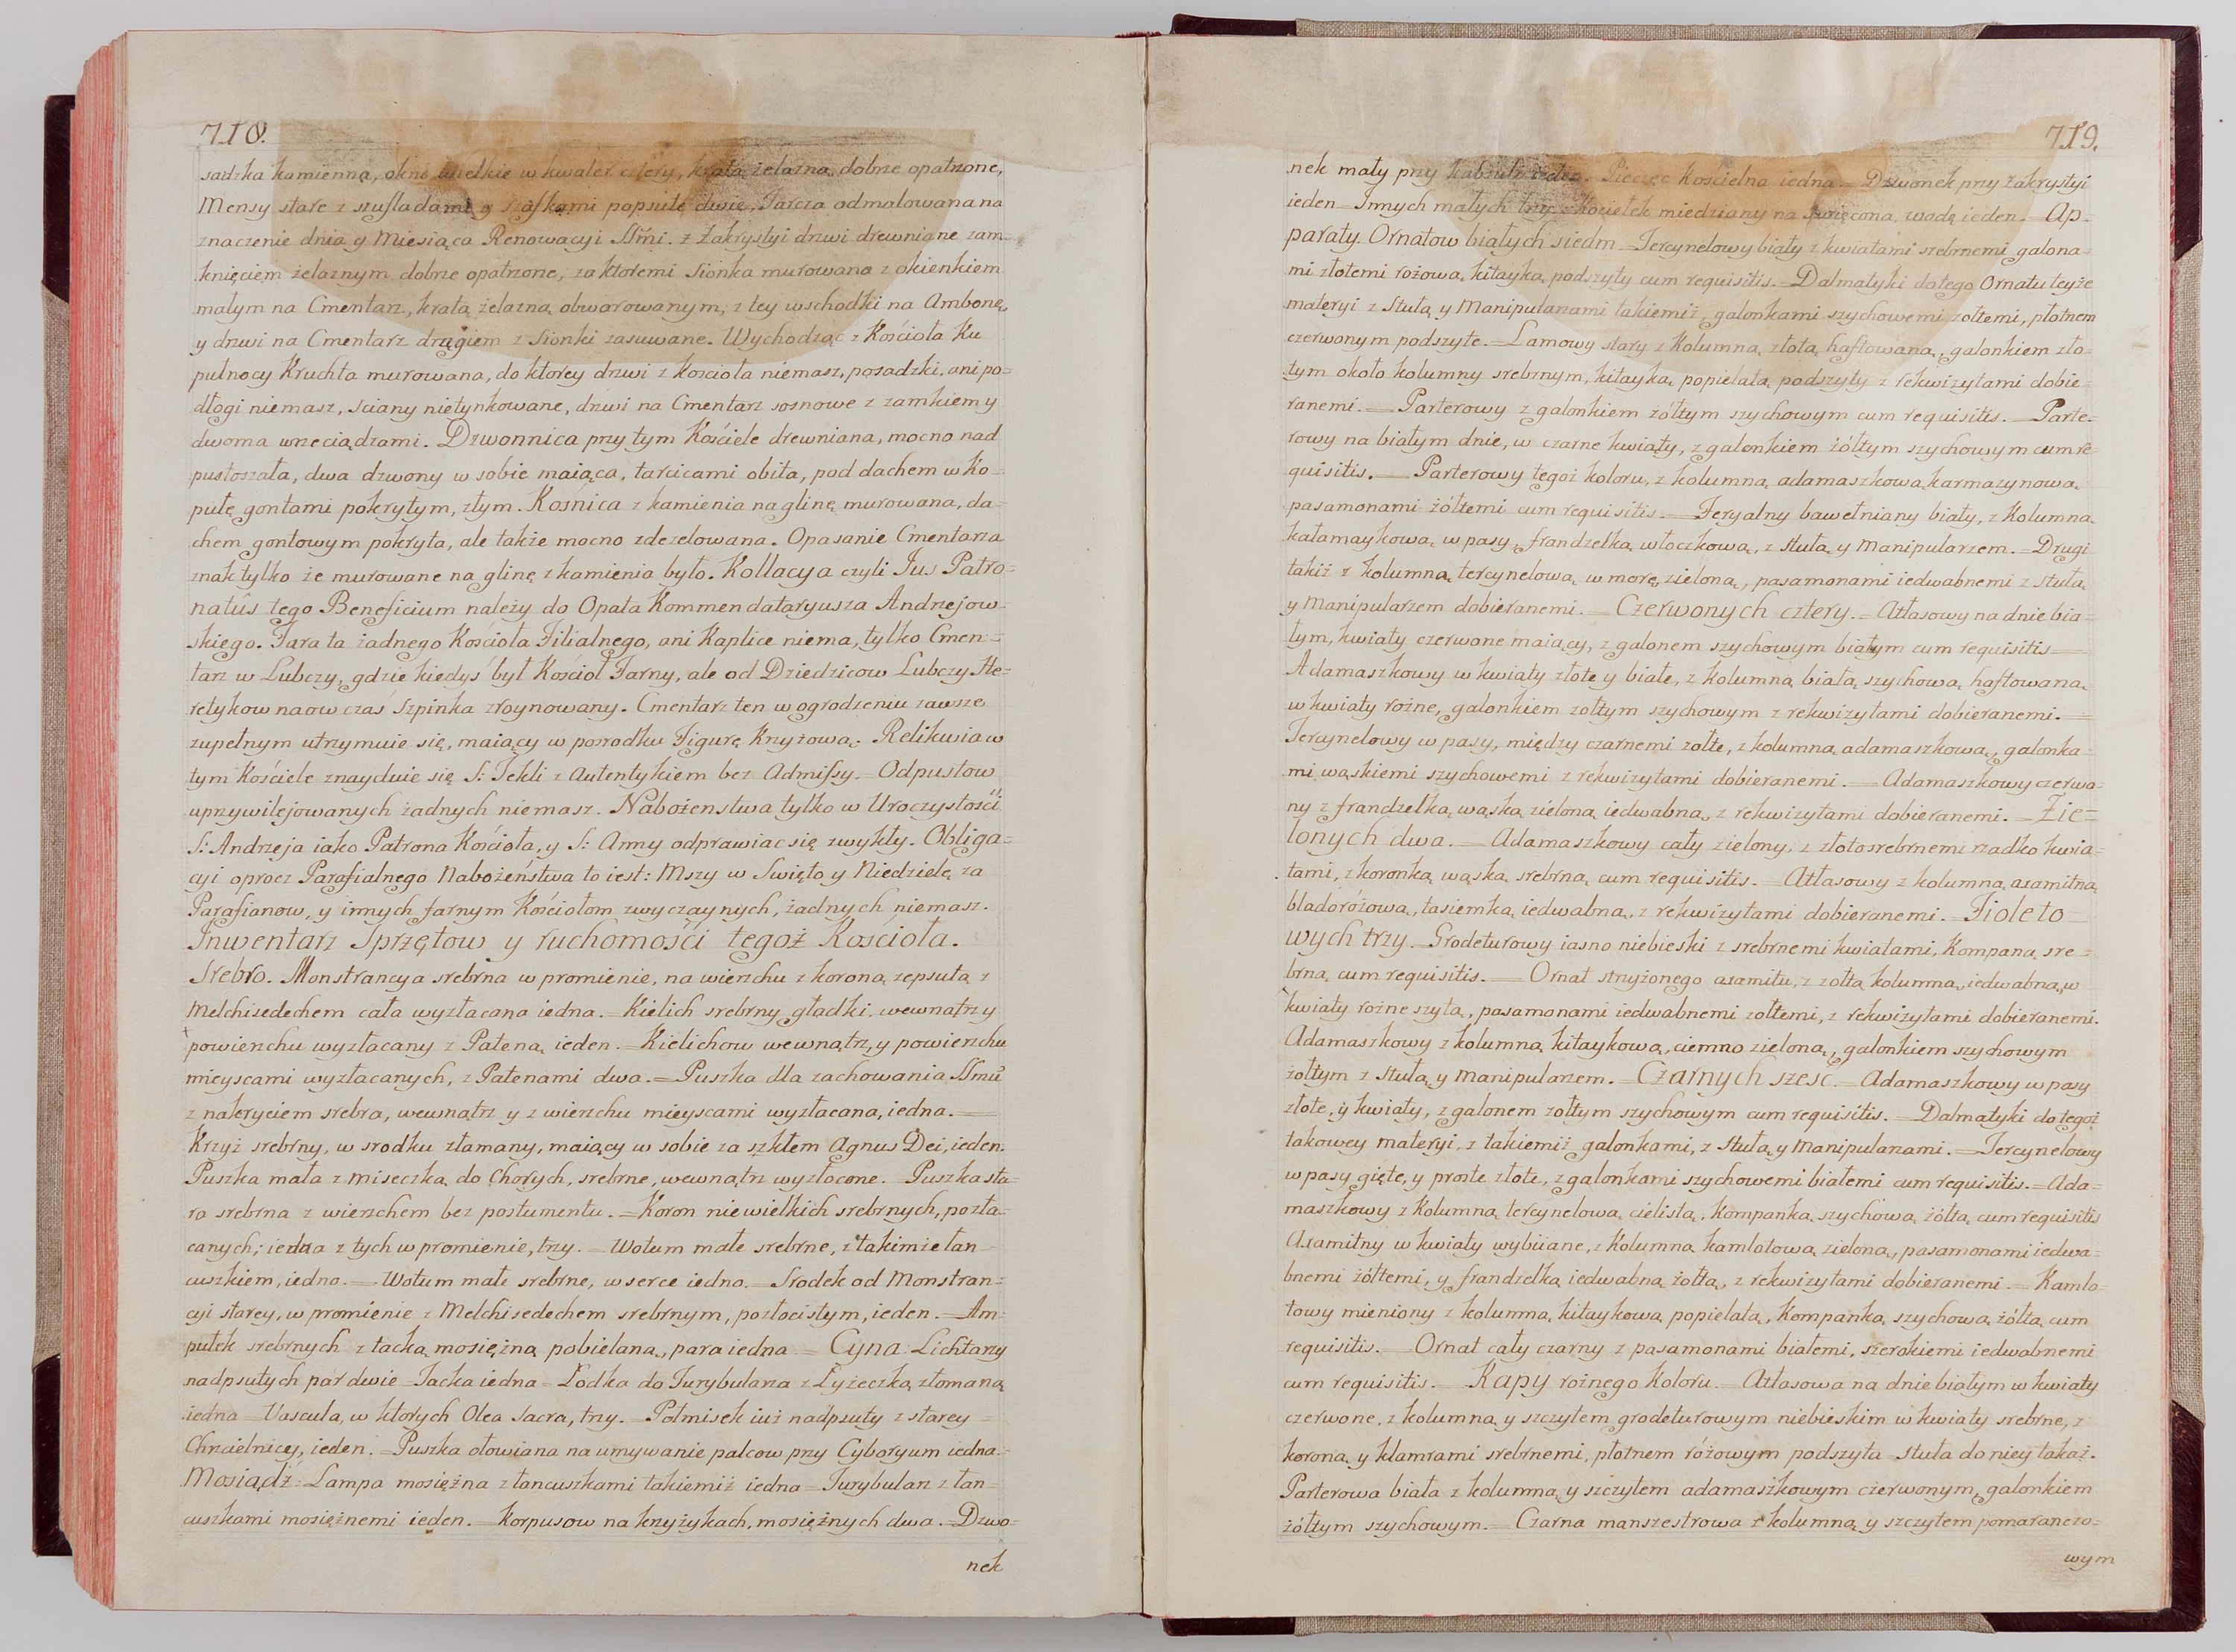 718.
sadzka kamienna, okno wielkie w kwater cztery, kratą żelazną dobrze opatrzone,
Mensy stare z szufladami y szafkami popsute dwie. Tarcza odmalowana na
znaczenie dnia y Miesiąca Renowacyi SSmi. z Zakrystyi drzwi drewniane zam-
knięciem żelaznym dobrze opatrzone, za ktoremi Sionka murowana z okienkiem
małym na Cmentarz, kratą żelazną obwarowanym, z tey wschodki na Ambonę,
y drzwi na Cmentarz drągiem z Sionki zasuwane. Wychodząc z Kościoła Ku
pułnocy Kruchta murowana, do ktorey drzwi z Kościoła niemasz, posadzki, ani po=
dłogi niemasz, sciany nietynkowane, drzwi na Cmentarz sosnowe z zamkiem y
dwoma wrzeciądzami. Dzwonnica przy tym Kościele drewniana, mocno nad
pustoszała, dwa dzwony w sobie maiąca, tarcicami obita, pod dachem w Ko-
pułę gontami pokrytym, złym. Kosnica z kamienia na glinę murowana, da-
chem gontowym pokryta, ale także mocno zdezelowana. Opasanie Cmentarza
znak tylko że murowane na glinę z kamienia było. Kollacya czyli Jus Patro=
natûs tego Beneficium należy do Opata Kommendataryusza Andrzejow-
skiego. Fara ta żadnego Kościoła Filialnego, ani Kaplice niema, tylko Cmen=
tarz w Lubczy, gdzie kiedyś był Kościoł Farny, ale od Dziedzicow Lubczy He=
retykow naow czas Szpinka zroynowany. Cmentarz ten w ogrodzeniu zawsze
zupełnym utrzymuie się, maiący w posrodku Figurę Krzyżową. Relikwia w
tym Kościele znayduie się S: Tekli z Autentykiem bez Admissy. = Odpustow
uprzywilejowanych żadnych niemasz. Nabożenstwa tylko w Uroczystości
S: Andrzeja iako Patrona Kościoła, y S: Anny odprawiac się zwykły. Obliga=
cyi oprocz Parafialnego Nabożeństwa to iest: Mszy w Swięto y Niedzielę za
Parafianow, y innych farnym Kościołom zwyczaynych, żadnych niemasz.
Inwentarz Sprzętow y ruchomości tegoż Kościoła.
Srebro. Monstrancya srebrna w promienie, na wierzchu z koroną zepsutą z
Melchisedechem cała wyzłacana iedna. = Kielich srebrny gładki, wewnątrz y
powierzchu wyzłacany z Pateną ieden. = Kielichow wewnątrz, y powierzchu
mieyscami wyzłacanych, z Patenami dwa. = Puszka dla zachowania SSmû
z nakryciem srebra, wewnątrz y z wierzchu mieyscami wyzłacana, iedna. =
Krzyż srebrny, w srodku złamany, maiący w sobie za szkłem Agnus Dei, ieden.
Puszka mała z miseczką do Chorych, srebrne, wewnątrz wyzłocone. Puszka sta-
ra srebrna z wierzchem bez postumentu. = Koron niewielkich srebrnych, pozła-
canych; iedna z tych w promienie, trzy. = Wotum małe srebrne, z takimże łan
cuszkiem, iedno. = Wotum małe srebrne, w serce iedno. = Srodek od Monstran=
cyi starey, w promienie z Melchisedechem srebrnym, pozłocistym, ieden. = Am-
pułek srebrnych z tacką mosiężną pobielaną, para iedna. = Cyna: Lichtarzy
nadpsutych par dwie = Tacka iedna = Łodka do Turybularza z Łyżeczką złomaną
iedna = Vascula, w ktorych Olea Sacra, trzy. = Połmisek iuż nadpsuty z starey =
Chrzcielnicy, ieden. = Puszka ołowiana na umywanie palcow przy Cyboryum iedna.=
Mosiądź: Lampa mosiężna z łancuszkami takiemiż iedna = Turybularz z łan=
cuszkami mosiężnemi ieden. = Korpusow na krzyżykach, mosiężnych dwa. = Dzwo=
nek
719.
nek mały przy ieden. Pieczęc Kościelna iedna = Dzwonek przy Zakrystyi
ieden = Innych małych trzy = Kociełek miedziany na Swięconą wodę ieden. = Ap-
paraty. Ornatow białych siedm = Tercynelowy biały z kwiatami srebrnemi galona-
mi złotemi rożową kitayką podszyty cum requisitis. = Dalmatyki do tego Ornatu teyże
materyi z Stułą y Manipularzami takiemiż, galonkami szychowemi zołtemi, płotnem
czerwonym podszyte. = Lamowy stary z Kolumną złotą haftowaną, galonkiem zło-
tym około kolumny srebrnym, kitayką popielatą podszyty z rekwizytami dobie-
ranemi. = Parterowy z galonkiem żółtym szychowym cum requisitis. = Parte-
rowy na białym dnie, w czarne kwiaty, z galonkiem żółtym szychowym cum re-
quisitis. = Parterowy tegoż koloru, z kolumną adamaszkową karmazynową
pasamonami żółtemi cum requisitis. = Feryalny bawełniany biały, z Kolumną
kałamaykową w pasy, frandzelką włoczkową, z stułą y Manipularzem. = Drugi
takiż z kolumną tercynelową w morę zieloną, pasamonami iedwabnemi z stułą
y Manipularzem dobieranemi. = Czerwonych cztery. = Atłasowy na dnie bia-
łym, kwiaty czerwone maiący, z galonem szychowym białym cum requisitis =
Adamaszkowy w kwiaty złote y białe, z kolumną białą szychową haftowaną
w kwiaty rożne, galonkiem zołtym szychowym z rekwizytami dobieranemi. =
Tercynelowy w pasy, między czarnemi zołte, z kolumną adamaszkową, galonka-
mi wąskiemi szychowemi z rekwizytami dobieranemi. = Adamaszkowy czerwo-
ny z frandzelką wąską zieloną iedwabną, z rekwizytami dobieranemi. = Zie=
lonych dwa. = Adamaszkowy cały zielony, z złotosrebrnemi rzadko kwia-
tami, z koronką wąską srebrną cum requisitis. = Atłasowy z kolumną axamitną
bladoróżową, tasiemką iedwabną, z rekwizytami dobieranemi. = Fioleto=
wych trzy = Grodeturowy iasno niebieski z srebrnemi kwiatami, Kompaną sre=
brną cum requisitis. = Ornat strzyżonego axamitu, z zołtą kolumną, iedwabną w
kwiaty rożne szytą, pasamonami iedwabnemi zołtemi, z rekwizytami dobieranemi.
Adamaszkowy z kolumną kitaykową, ciemno zieloną, galonkiem szychowym
żołtym z Stułą y Manipularzem. = Czarnych szesc. = Adamaszkowy w pasy
złote, y kwiaty, z galonem zołtym szychowym cum requisitis. = Dalmatyki do tegoż
takowey materyi, z takiemiż galonkami, z Stułą y Manipularzami. = Tercynelowy
w pasy gięte, y proste złote, z galonkami szychowemi białemi cum requisitis. = Ada-
maszkowy z Kolumną tercynelową cielistą, Kompanką szychową żółtą cum requisitis
Axamitny w kwiaty wybiiane, z Kolumną kamlotową zieloną, pasamonami iedwa-
bnemi żółtemi, y frandzelką iedwabną żołtą, z rekwizytami dobieranemi. = Kamlo-
towy mieniony z kolumną kitaykową popielatą, Kompanką szychową żółtą cum
requisitis. = Ornat cały czarny z pasamonami białemi, szerokiemi iedwabnemi
cum requisitis. = Kapy rożnego Koloru. = Atłasowa na dnie białym w kwiaty
czerwone, z kolumną y szczytem grodeturowym niebieskim w kwiaty srebrne, z
koroną y klamrami srebrnemi, płotnem różowym podszyta Stuła do niey takaż.
Parterowa biała z kolumną y szczytem adamaszkowym czerwonym, galonkiem
żółtym szychowym. = Czarna manszestrowa z kolumną y szczytem pomaranczo=
wym